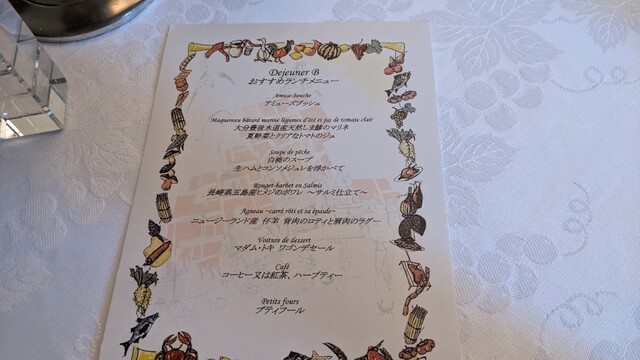 Dejeuner B
おすすめランチメニュー
Amuse-bouche
アミューズブッシュ
Maquereau bâtard mariné légumes d'été et jus de tomate clair
大分豊後水道産天然しま鯵のマリネ
夏野菜とクリアなトマトのジュ
Soupe de pêche
白桃のスープ
生ハムとコンソメジュレを浮かべて
Rouget-barbet en Salmis
長崎県五島産ヒメジのポワレ ～サルミ仕立て～
Agneau ~carré rôti et sa épaule~
ニュージーランド産 仔羊 背肉のロティと肩肉のラグー
Voiture de dessert
マダム・トキ ワゴンデセール
Café
コーヒー又は紅茶、ハーブティー
Petits fours
プティフール